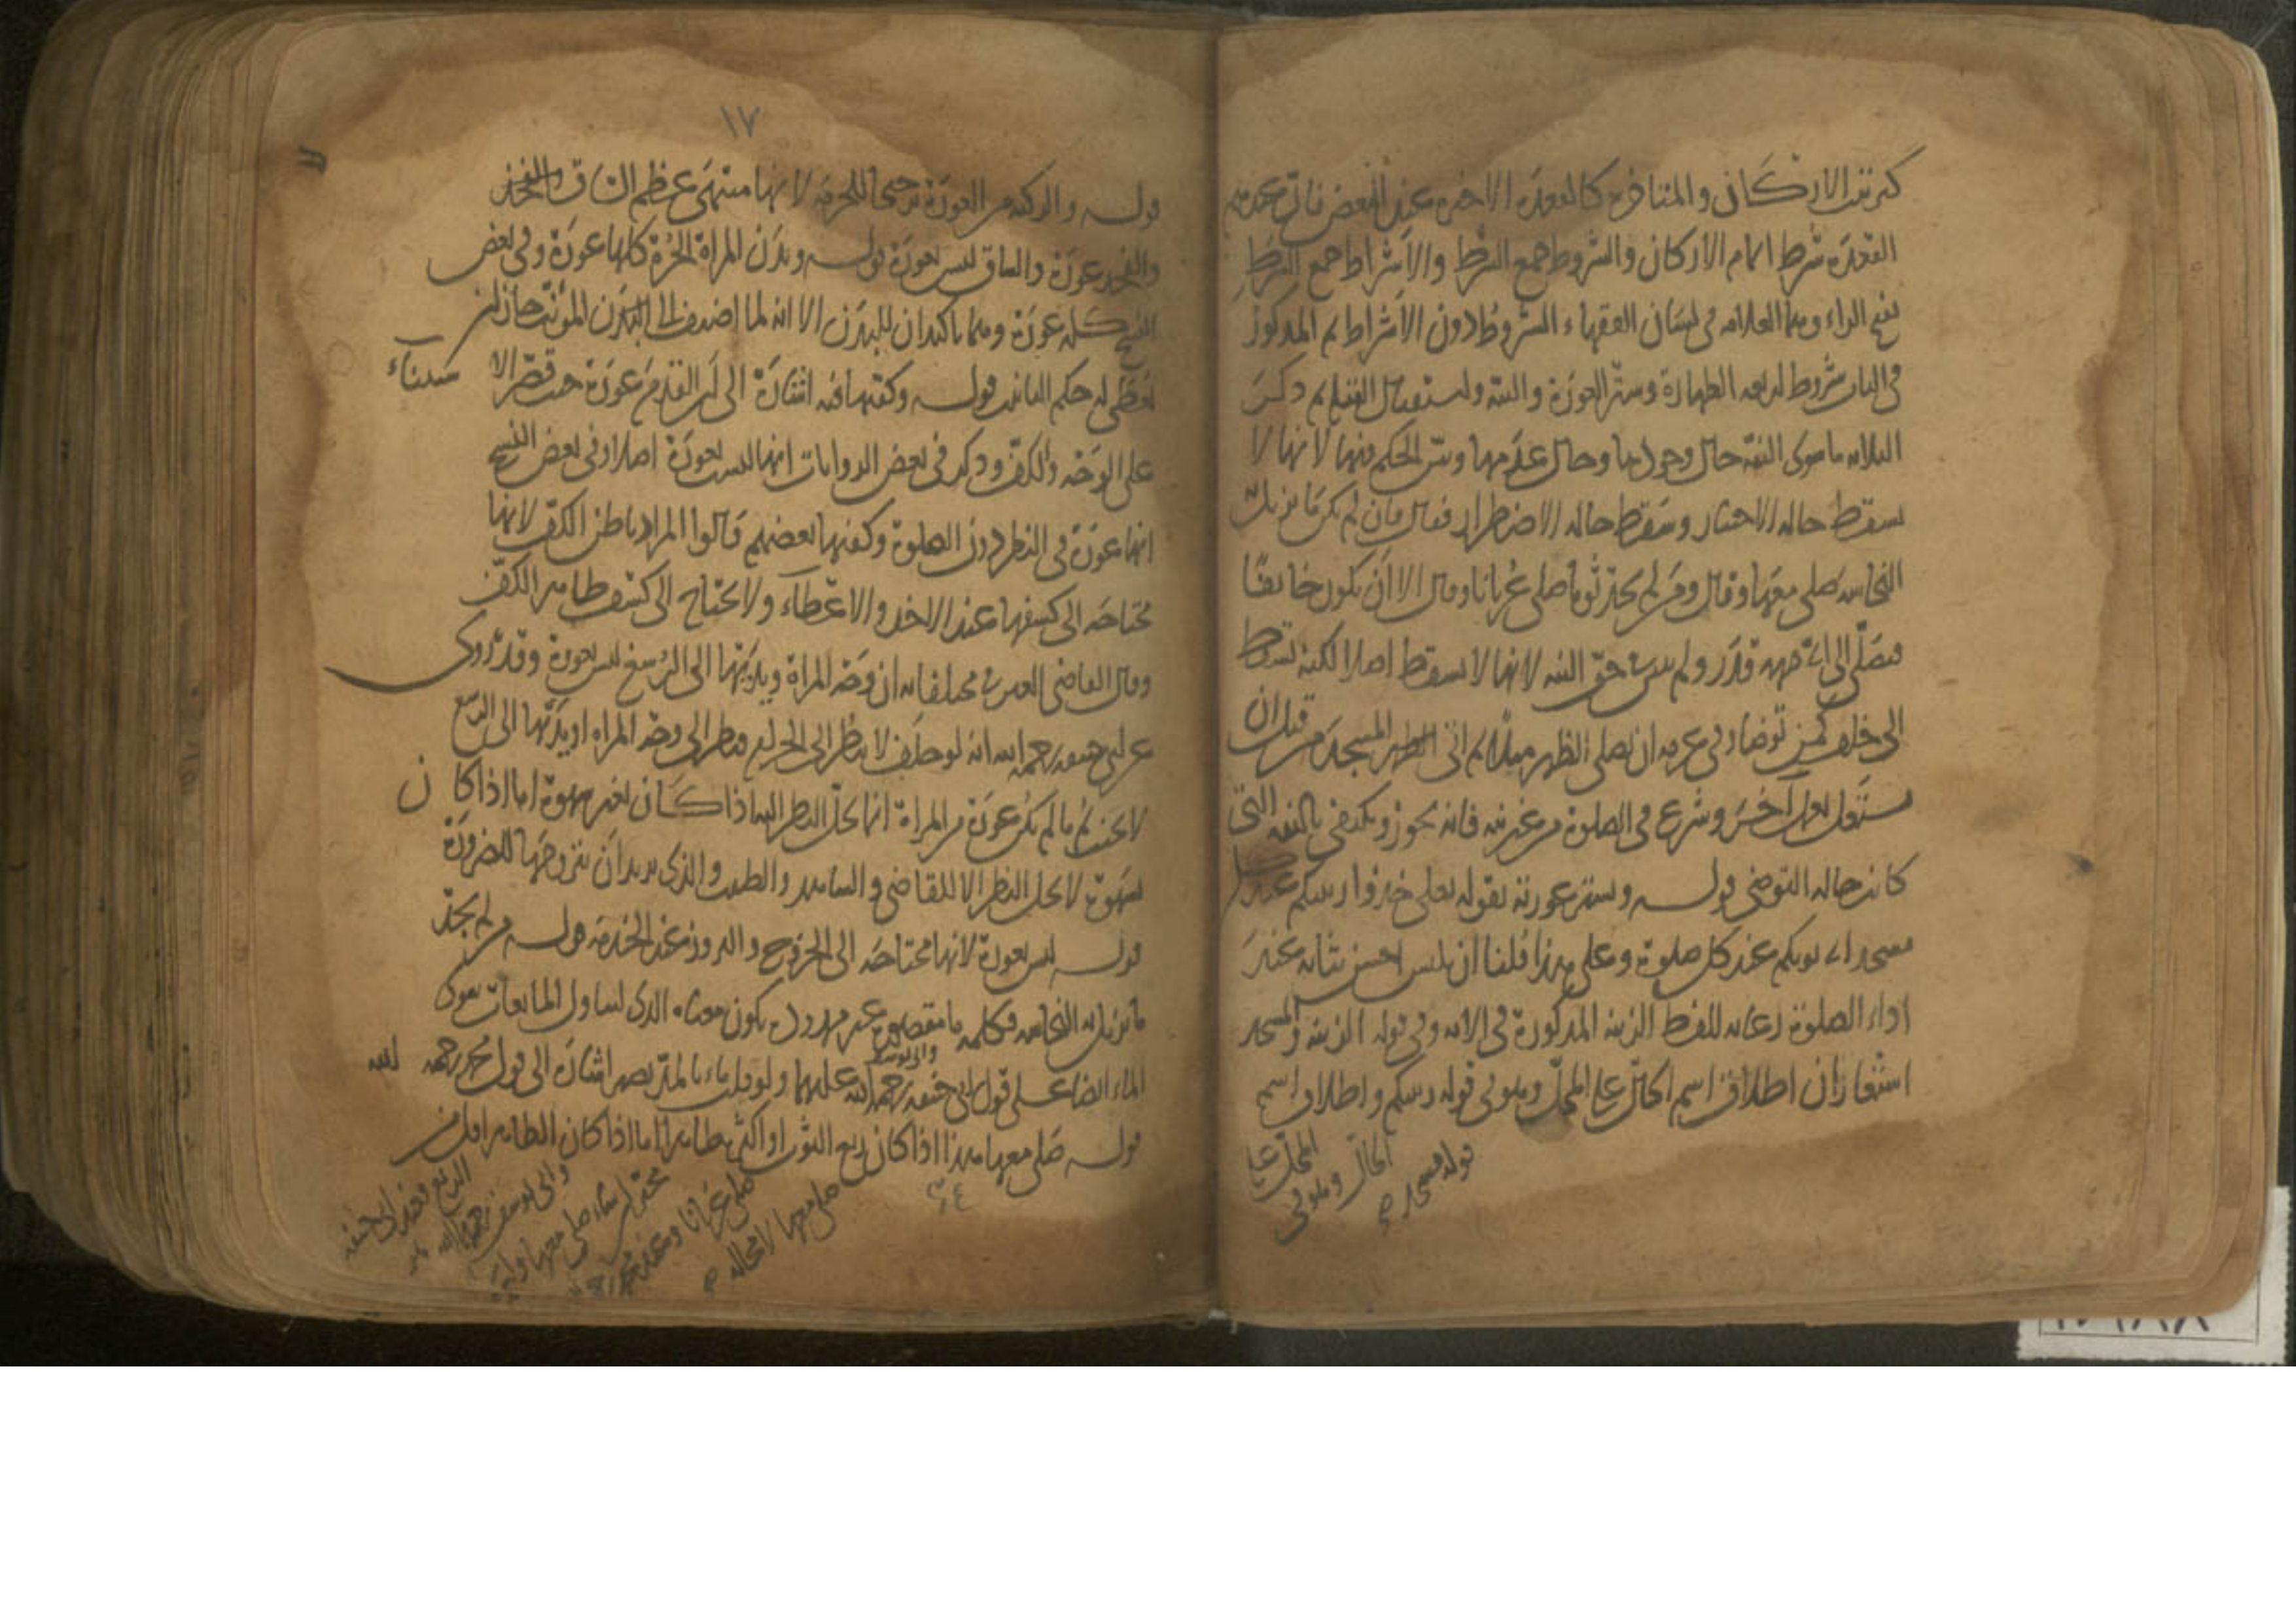 كترتيب الاركان والمتأخره كالقعدة الاخيره عند البعض فان عندهم
القعدة شرط اتمام الاركان والشروط جمع الشرط والاشراط جمع الشرط
بفتح الراء وهما العلامه في لسان الفقهاء الشروط دون الاشراط ثم المذكور
في الباب شروط اربعه الطهارة وستر العورة والنية واستقبال القبلة ثم ذكر
الثلاثه ما سوى النية حال وجودها وحال عدمها وبين الحكم فيها لانها لا
تسقط حاله الاختيار وتسقط حاله الاضطرار فقال فان لم يكن ما يزيل به
النجاسه صلى معها وقال ومن لم يجد ثوبا صلى عريانا وقال الا ان يكون خائفا
فيصلي الى اي جهه قدر ولم يبين في حق النيه لانها لا تسقط اصلا لكنه تسقط
الى خلف كمن توضأ وفي عزمه ان يصلي الظهر مثلا ثم اتى المسجد من قبل ان
يشتغل بعمل آخر وشرع في الصلوة من غير نيه فانه يجوز ويكتفى بالنيه التي
كانت حاله التوضي قوله ويستر عورته لقوله تعالى خذوا زينتكم عند كل
مسجد اي ثوبكم عند كل صلوة وعلى هذا قلنا ان يلبس احسن ثيابه عند
اداء الصلوة رعايه للفظ الزينه المذكورة في الايه وفي قوله الزينه والمسجد
استعارتان اطلاق اسم الحال على المحل وهو في قوله زينتكم واطلاق اسم
المحل على
الحال وهو في
قوله مسجد
١٧
قوله والركبه من العورة ترجيحا للحرمه لانها منتهى عظم الساق والفخذ
والفخذ عورة والساق ليس بعورة قوله وبدن المراة الحرة كلها عورة وفي بعض
النسخ كله عورة وهما تاكيدان للبدن الا انه لما اضيف الى البدن المؤنث جاز ان
يعطى له حكم التانيث قوله وكفيها فيه اشارة الى ان القدم عورة حيث قصر الاستثناء
على الوجه والكف وذكر في بعض الروايات انها ليست بعورة اصلا وفي بعض النسخ
انها عورة في النظر دون الصلوة وكفيها بعضهم قالوا المراد باطن الكف لانها
محتاجه الى كشفها عند الاخذ والاعطاء ولا يحتاج الى كشف ظاهر الكف
وقال القاضي الغني في مختلفاته ان وجه المراة ويديها الى الرسغ ليس بعورة وقد روى
عن ابي حنيفه رحمه الله انه لو حلف لا ينظر الى الحرام فنظر الى وجه المراه او يديها الى الرسغ
لا يحنث ثم ما لم يكن عورة من المراة انما يحل النظر اليه اذا كان بغير شهوة اما اذا كان
بشهوة لا يحل النظر الا للقاضي والشاهد والطبيب والذي يريد ان يتزوجها للضرورة
قوله ليس بعورة لانها محتاجه الى الخروج والبروز عند الخدمه قوله ومن لم يجد
ما يزيل به النجاسه فكلمه ما مقصوره غير ممدوده يكون معناه الذي ليتناول المائعات سوى
الماء ايضا على قول ابي حنيفه وابي يوسف رحمه الله عليهما ولو قيل ماء بالمد يصير اشارة الى قول محمد رحمه الله
قوله صلى معها هذا اذا كان ربع الثوب او اكثر طاهرا اما اذا كان الطاهر اقل من
الربع فعند ابي حنيفه
وابي يوسف رحمهما الله
يخير ان شاء صلى معها وان شاء
صلى عريانا وعند محمد رحمه الله
صلى معها لا محاله